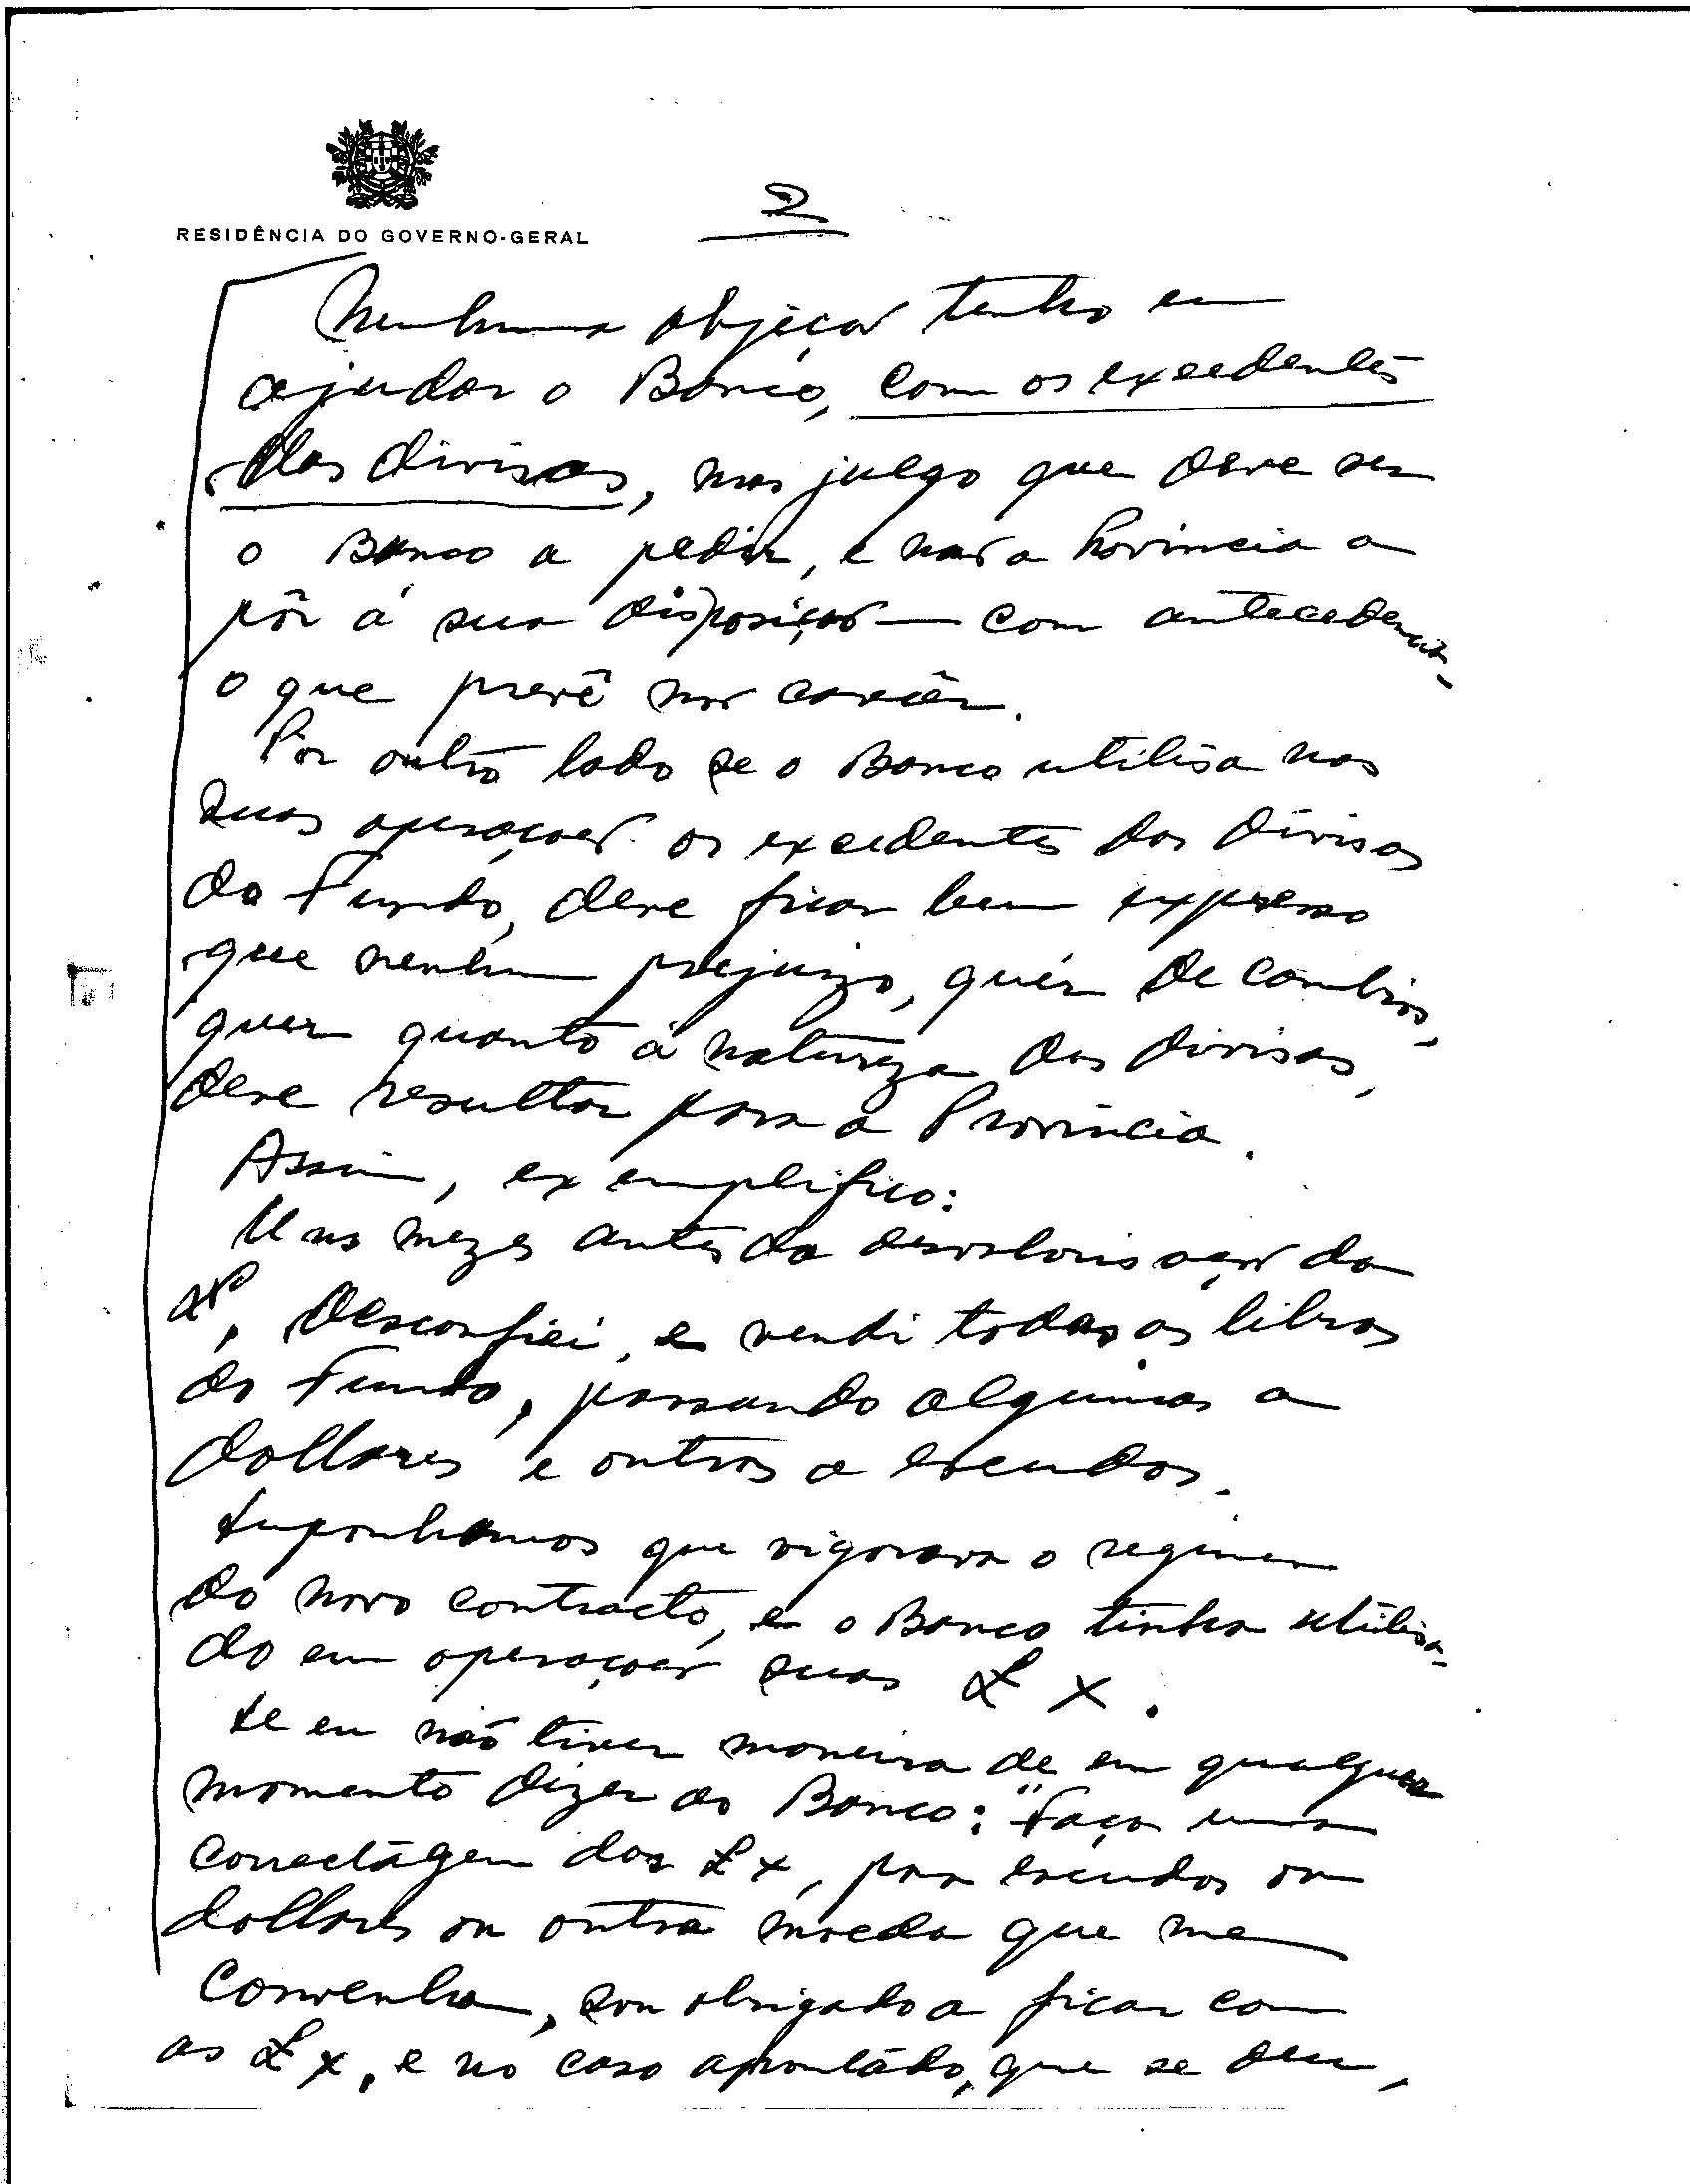 RESIDÊNCIA DO GOVERNO-GERAL
2
Nenhuma objeção tenho em
ajudar o Banco, com os excedentes
das divisas, mas julgo que deve ser
o Banco a pedir, e não a Provincia a
pôr á sua disposição — com antecedencia,
o que prevê não carecer.
Por outro lado se o Banco utilisa nas
suas operações os excedentes das divisas
do Fundo, deve ficar bem expresso
que nenhum prejuizo, quér de cambios,
quer quanto á natureza das divisas,
deve resultar para a Provincia.
Assim, exemplifico:
Uns mezes antes da desvalorisação da
£, desconfiei, e vendi todas as libras
do Fundo, passando algumas a
dollares e outras a escudos.
Suponhamos que vigorava o regimen
do novo contracto, e o Banco tinha utilisa-
do em operações suas £ x.
Se eu não tiver maneira de em qualquer
momento dizer ao Banco: "Faça uma
das £ x, para escudos ou
dollares ou outra moeda que me
convenha, sou obrigado a ficar com
as £ x, e no caso apontado, que se deu,